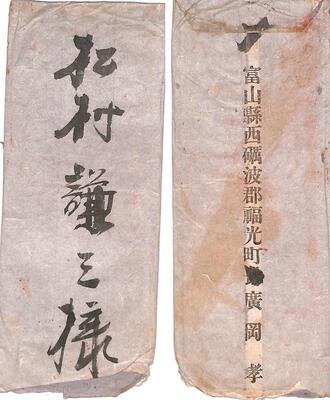 松村謙三様
富山縣西礪波郡福光町
廣岡孝